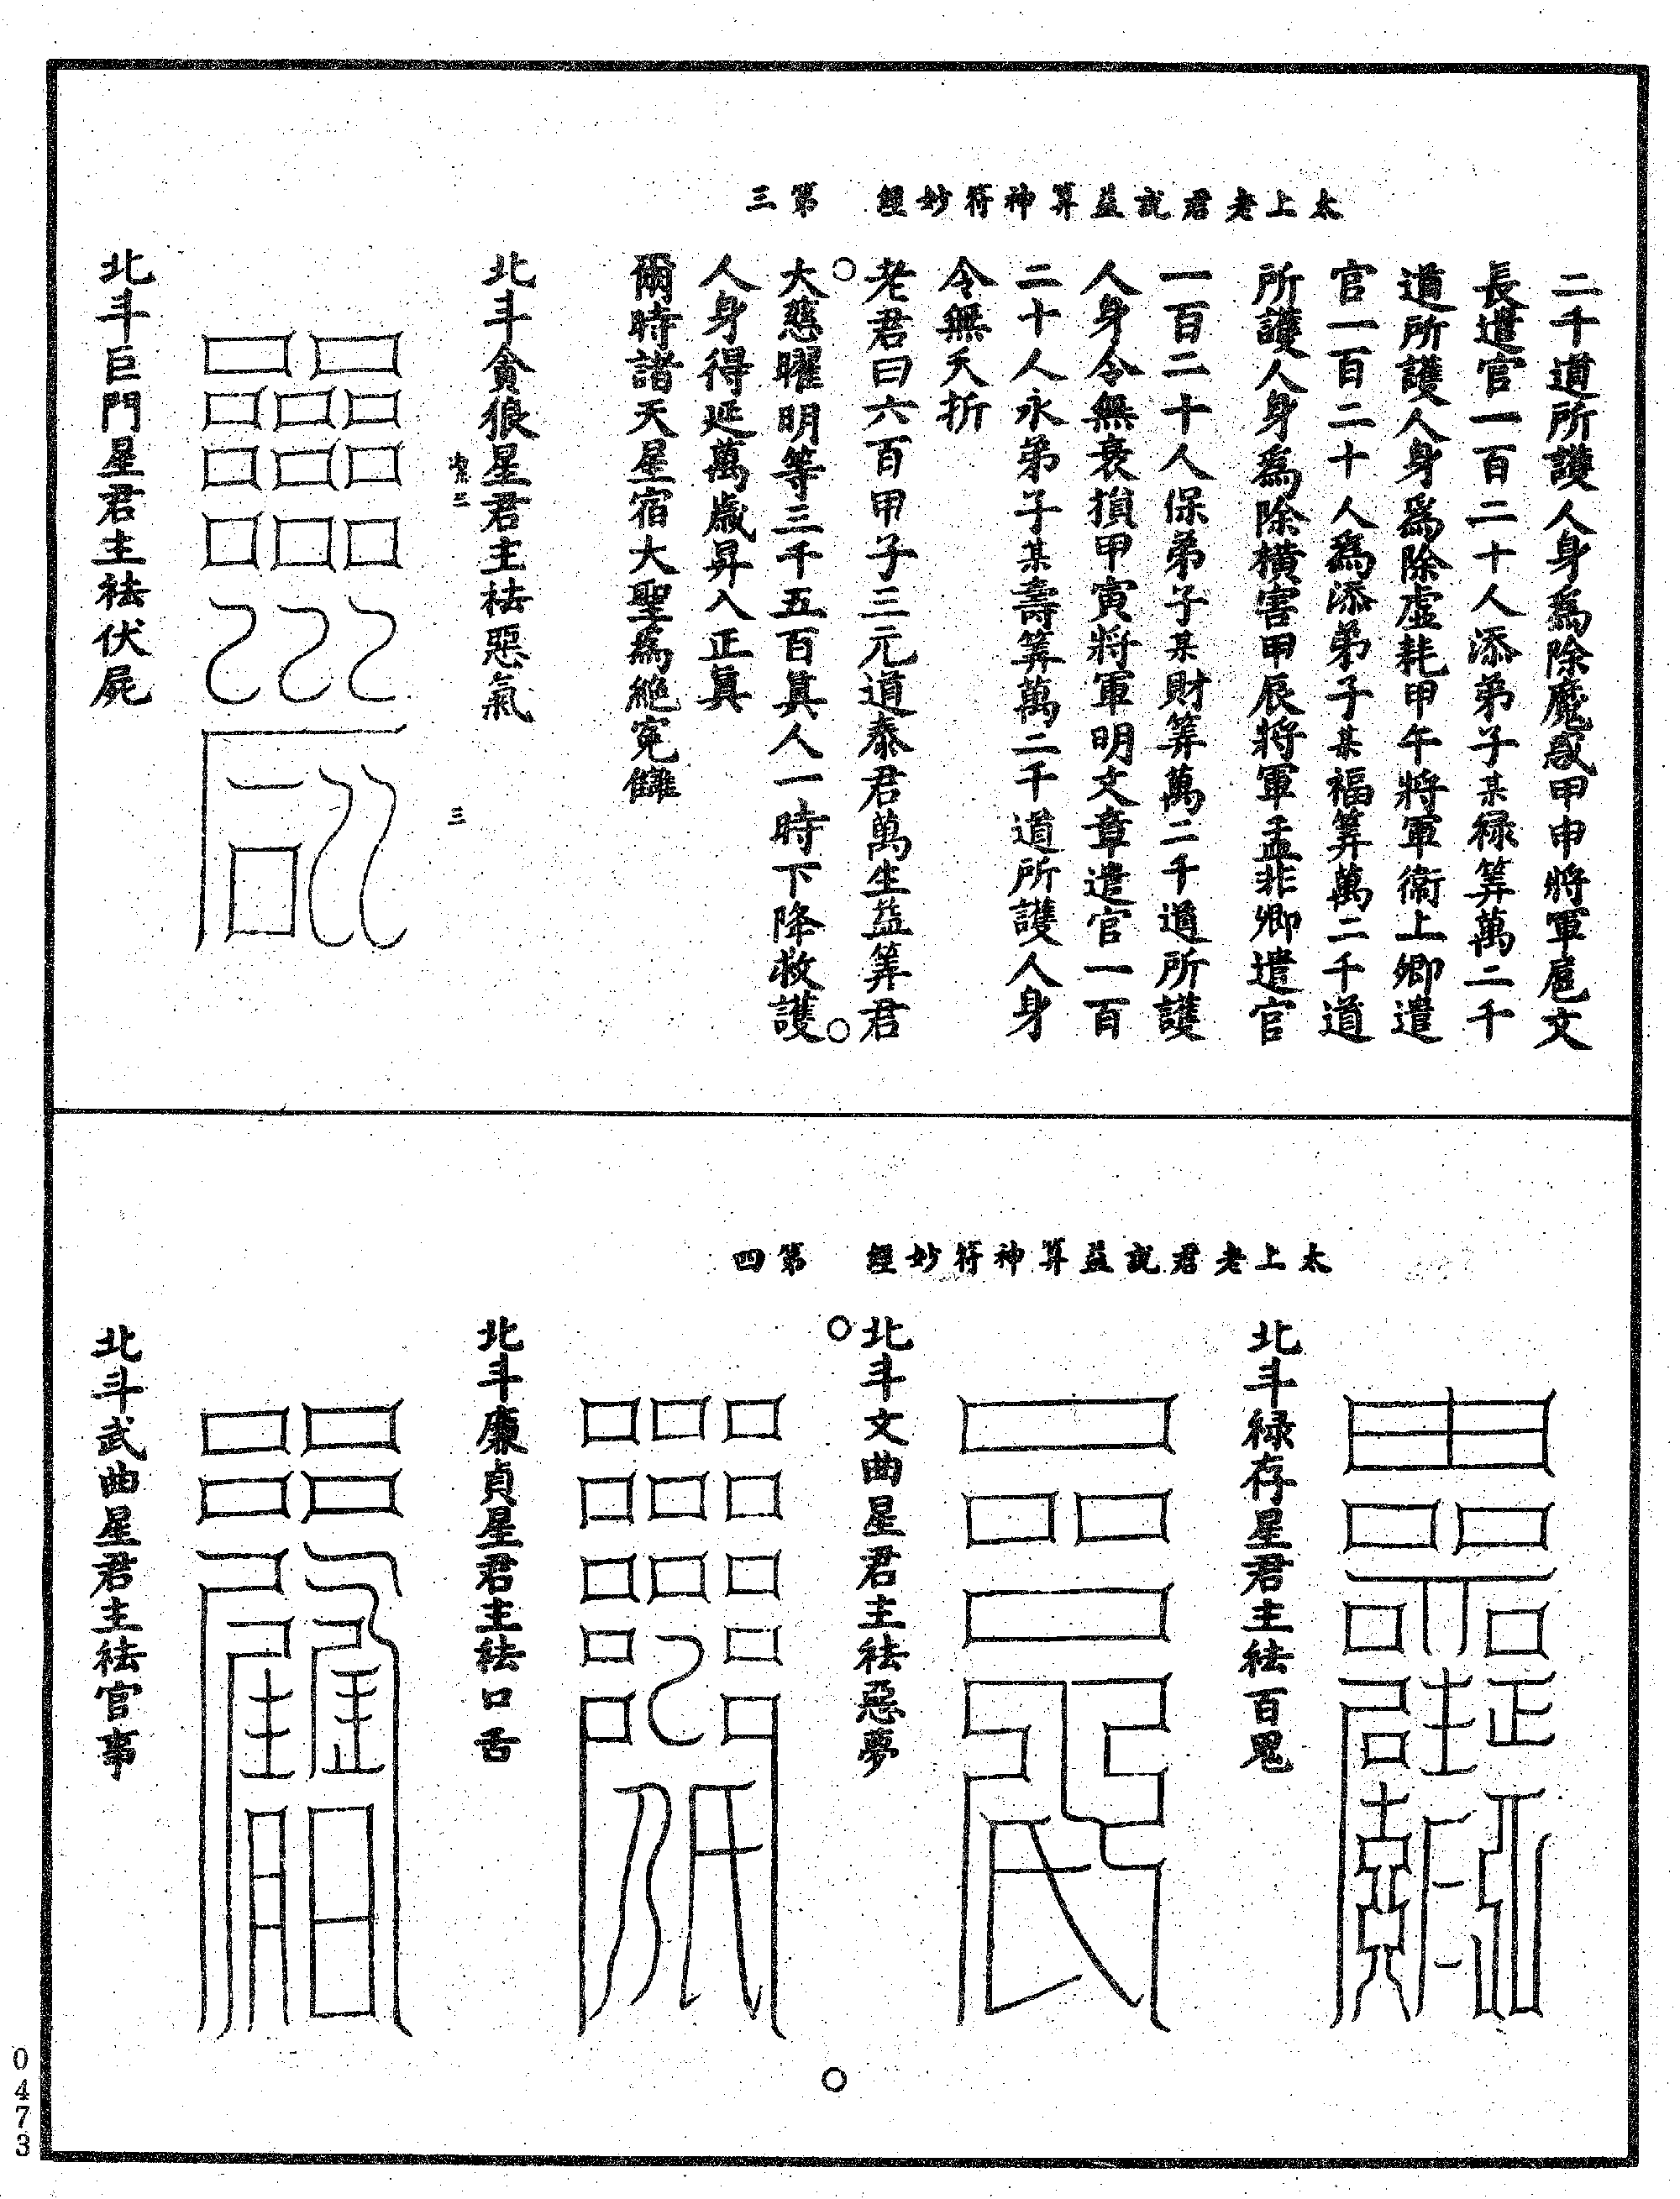 太上老君說益筭神符妙經　第三
二千道所護人身爲除魔惑甲申將軍扈文
長遣官一百二十人添弟子某祿筭萬二千
道所護人身爲除虛耗甲午將軍衞上卿遣
官一百二十人爲添弟子某福筭萬二千道
所護人身爲除橫害甲辰將軍孟非卿遣官
一百二十人保弟子某財筭萬二千道所護
人身令無衰損甲寅將軍明文章遣官一百
二十人永弟子某壽筭萬二千道所護人身
令無夭折
老君曰六百甲子三元道泰君萬生益筭君
大慈曜明等三千五百眞人一時下降救護
人身得延萬歲昇入正眞
爾時諸天星宿大聖爲絕寃讎
北斗貪狼星君主祛惡氣
三
北斗巨門星君主祛伏屍
太上老君說益筭神符妙經　第四
北斗祿存星君主祛百鬼
北斗文曲星君主祛惡夢
北斗廉貞星君主祛口舌
北斗武曲星君主祛官事
0473